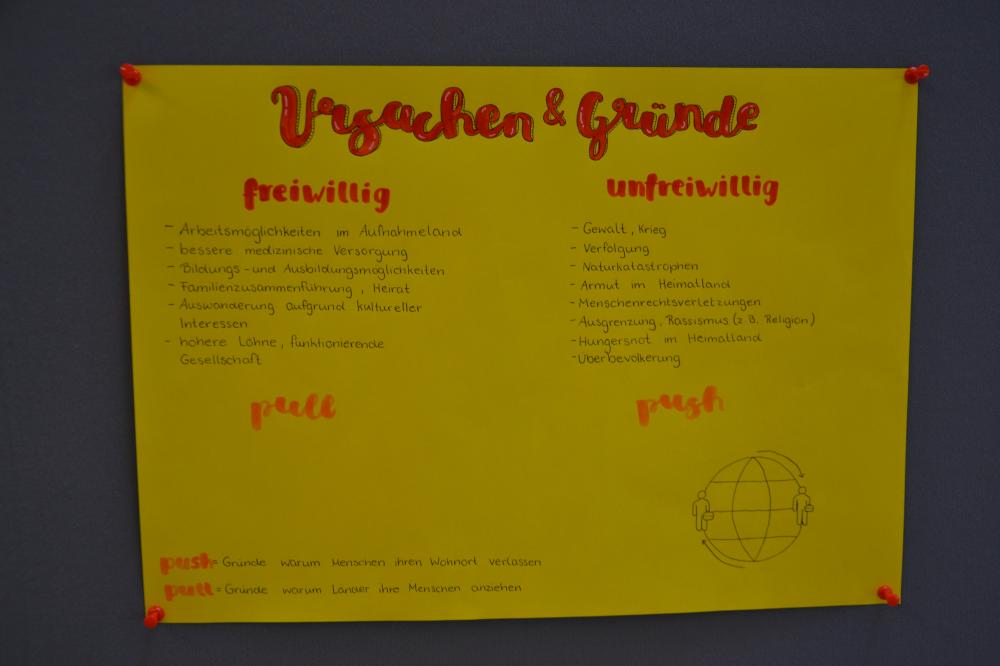 Ursachen & Gründe
freiwillig
- Arbeitsmöglichkeiten im Aufnahmeland
- bessere medizinische Versorgung
- Bildungs- und Ausbildungsmöglichkeiten
- Familienzusammenführung, Heirat
- Auswanderung aufgrund kultureller
Interessen
- höhere Löhne, funktionierende
Gesellschaft
pull
unfreiwillig
- Gewalt, Krieg
- Verfolgung
- Naturkatastrophen
- Armut im Heimatland
- Menschenrechtsverletzungen
- Ausgrenzung, Rassismus (z.B. Religion)
- Hungersnot im Heimatland
- Überbevölkerung
push
push = Gründe warum Menschen ihren Wohnort verlassen
pull = Gründe warum Länder ihre Menschen anziehen